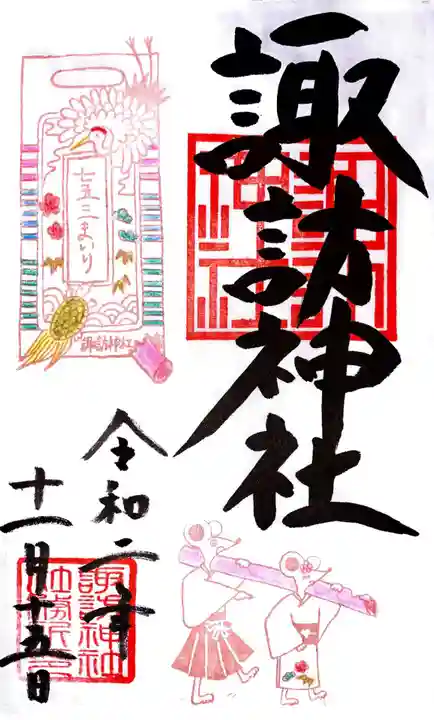 諏訪神社
七五三まいり
諏訪神社
令和二年
十一月十五日
諏訪神社
社務所印